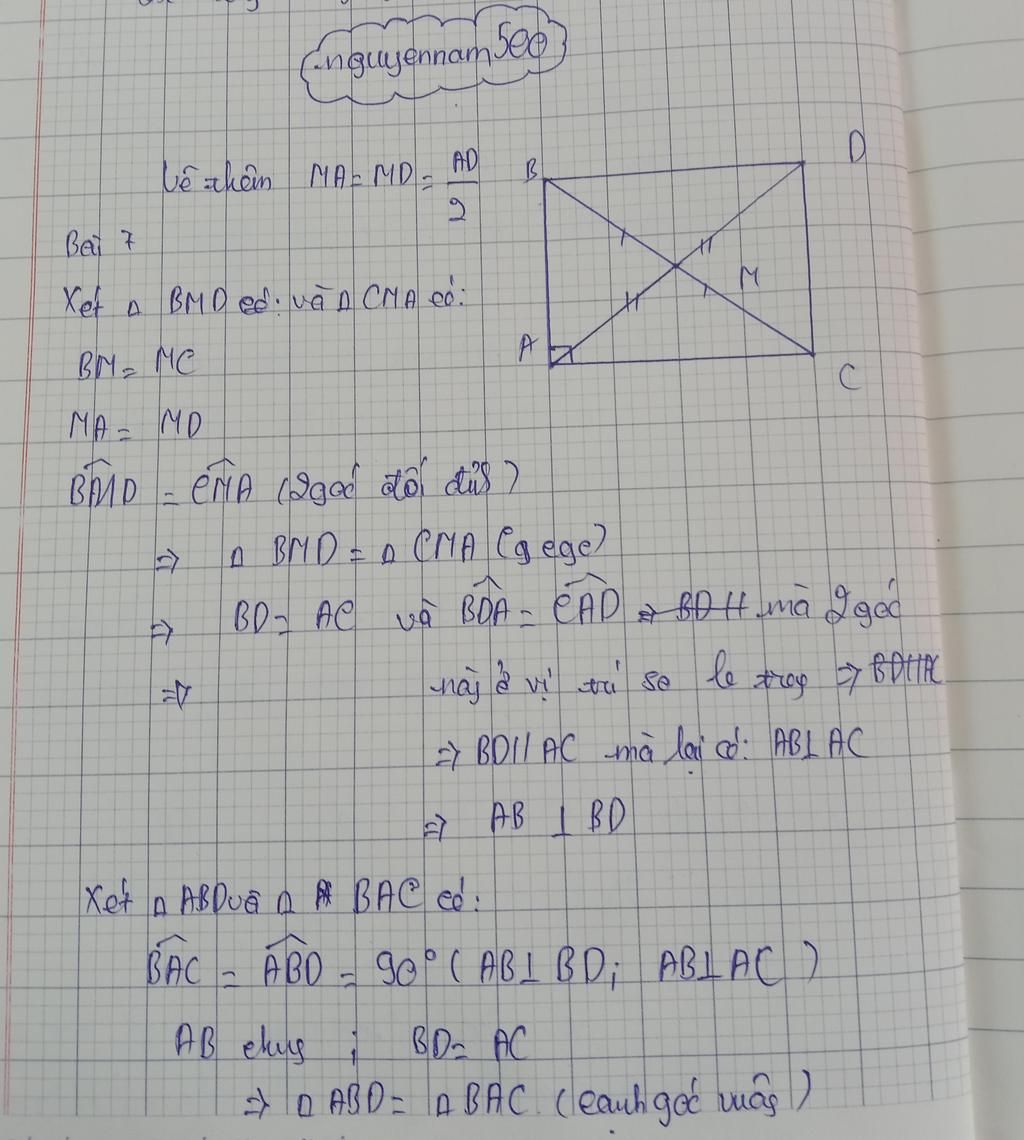 nguyennam500
Vẽ thêm MA = MD = AD/2
B
D
Bài 7
Xét Δ BMD có: và Δ CMA có:
M
A
BM = MC
C
MA = MD
BMD = CMA (2 góc đối đỉnh)
⇒ Δ BMD = Δ CMA (c g c)
⇒ BD = AC và BDA = CAD ⇒ BD // mà 2 góc
⇒ này ở vị trí so le trong ⇒ BD // AC
⇒ BD // AC mà lại có: AB ⊥ AC
⇒ AB ⊥ BD
Xét Δ ABD và Δ BAC có:
BAC = ABD = 90° ( AB ⊥ BD; AB ⊥ AC )
AB chung ; BD = AC
⇒ Δ ABD = Δ BAC (cạnh góc vuông)